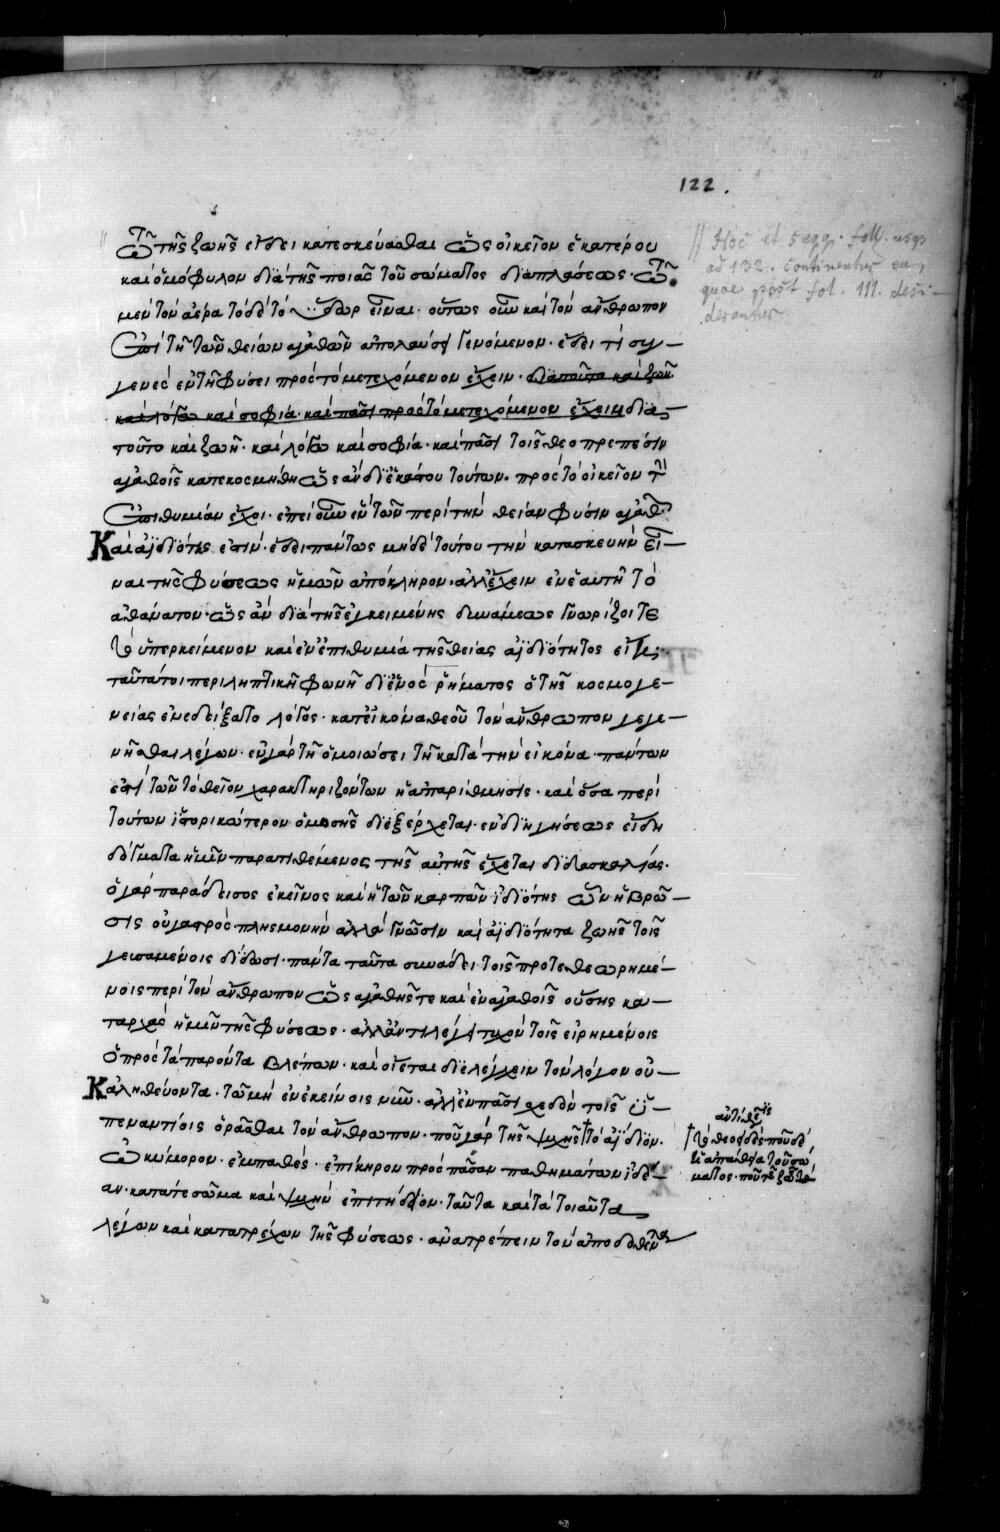 122.
τῷ τῆς ζωῆς εἴδει κατεσκεύασθαι ὡς οἰκεῖον ἑκατέρου
καὶ ὁμόφυλον διὰ τῆς ποιᾶς τοῦ σώματος διαπλάσεως. τῷ
μὲν τὸν ἀέρα τῷ δὲ τὸ ὕδωρ εἶναι. οὕτως οὖν καὶ τὸν ἄνθρωπον
ἐπὶ τῇ τῶν θείων ἀγαθῶν ἀπολαύσει γενόμενον. ἔδει τι συγ-
γενὲς ἐν τῇ φύσει πρὸς τὸ μετεχόμενον ἔχειν. διὰ τοῦτο καὶ ζωῇ
καὶ λόγῳ καὶ σοφίᾳ. καὶ πᾶσι πρὸς τὸ μετεχόμενον ἔχειν διὰ
τοῦτο καὶ ζωῇ. καὶ λόγῳ καὶ σοφίᾳ. καὶ πᾶσι τοῖς θεοπρεπέσιν
ἀγαθοῖς κατεκοσμήθη ὡς ἂν δι' ἑκάστου τούτων. πρὸς τὸ οἰκεῖον τὴν
ἐπιθυμίαν ἔχοι. ἐπεὶ οὖν ἓν τῶν περὶ τὴν θείαν φύσιν ἀγαθῶν
Καὶ ἀϊδιότης ἐστίν. ἔδει πάντως μηδὲ τούτου τὴν κατασκευὴν εἶ-
ναι τῆς φύσεως ἡμῶν ἀπόκληρον. ἀλλ' ἔχειν ἐν ἑαυτῇ τὸ
ἀθάνατον. ὡς ἂν διὰ τῆς ἐγκειμένης δυνάμεως γνωρίζοι τε
τὸ ὑπερκείμενον καὶ ἐν ἐπιθυμίᾳ τῆς θείας ἀϊδιότητος εἴη.
ταῦτά τοι περιληπτικῇ φωνῇ δι' ἑνὸς ῥήματος ὁ τῆς κοσμογε-
νείας ἐνεδείξατο λόγος. κατ' εἰκόνα θεοῦ τὸν ἄνθρωπον γεγε-
νῆσθαι λέγων. ἐν γὰρ τῇ ὁμοιώσει τῇ κατὰ τὴν εἰκόνα. πάντων
ἐστὶ τῶν τὸ θεῖον χαρακτηριζόντων ἡ ἀπαρίθμησις. καὶ ὅσα περὶ
τούτων ἱστορικώτερον ὁ μωσῆς διεξέρχεται. ἐν διηγήσεως εἴδει
δόγματα ἡμῖν παρατιθέμενος τῆς αὐτῆς ἔχεται διδασκαλίας.
ὁ γὰρ παράδεισος ἐκεῖνος καὶ ἡ τῶν καρπῶν ἰδιότης ὧν ἡ βρῶ-
σις οὐ γαστρὸς πλησμονὴν ἀλλὰ γνῶσιν καὶ ἀϊδιότητα ζωῆς τοῖς
γευσαμένοις δίδωσι. πάντα ταῦτα συνᾴδει τοῖς προτεθεωρημέ-
νοις περὶ τὸν ἄνθρωπον ὡς ἀγαθῆς τε καὶ ἐν ἀγαθοῖς οὔσης κα-
ταρχὰς ἡμῖν τῆς φύσεως. ἀλλ' ἀντιλέγει τυχὸν τοῖς εἰρημένοις
ὁ πρὸς τὰ παρόντα βλέπων. καὶ οἴεται διελέγχειν τὸν λόγον οὐ-
Κ ἀληθεύοντα. τῷ μὴ ἐν ἐκείνοις νῦν. ἀλλ' ἐν πᾶσι σχεδὸν τοῖς ὑ-
πεναντίοις ὁρᾶσθαι τὸν ἄνθρωπον. ποῦ γὰρ τῆς ψυχῆς τὸ ἀΐδιον.
ὠκύμορον. ἐμπαθές. ἐπίκηρον πρὸς πᾶσαν παθημάτων ἰδέ-
αν. κατά τε σῶμα καὶ ψυχὴν ἐπιτήδειον. ταῦτα καὶ τὰ τοιαῦτα
λέγων καὶ κατατρέχων τῆς φύσεως. ἀνατρέπειν τὸν ἀποδοθέντα
// Hoc et seqq. foll. usqꝫ
ad 132. continentur ea,
quae post fol. 111. desi-
derantur
τὸ θεοειδές. ποῦ δὲ
ἡ ἀπάθεια τοῦ σώ
ματος. ποῦ τῆς ζωῆς